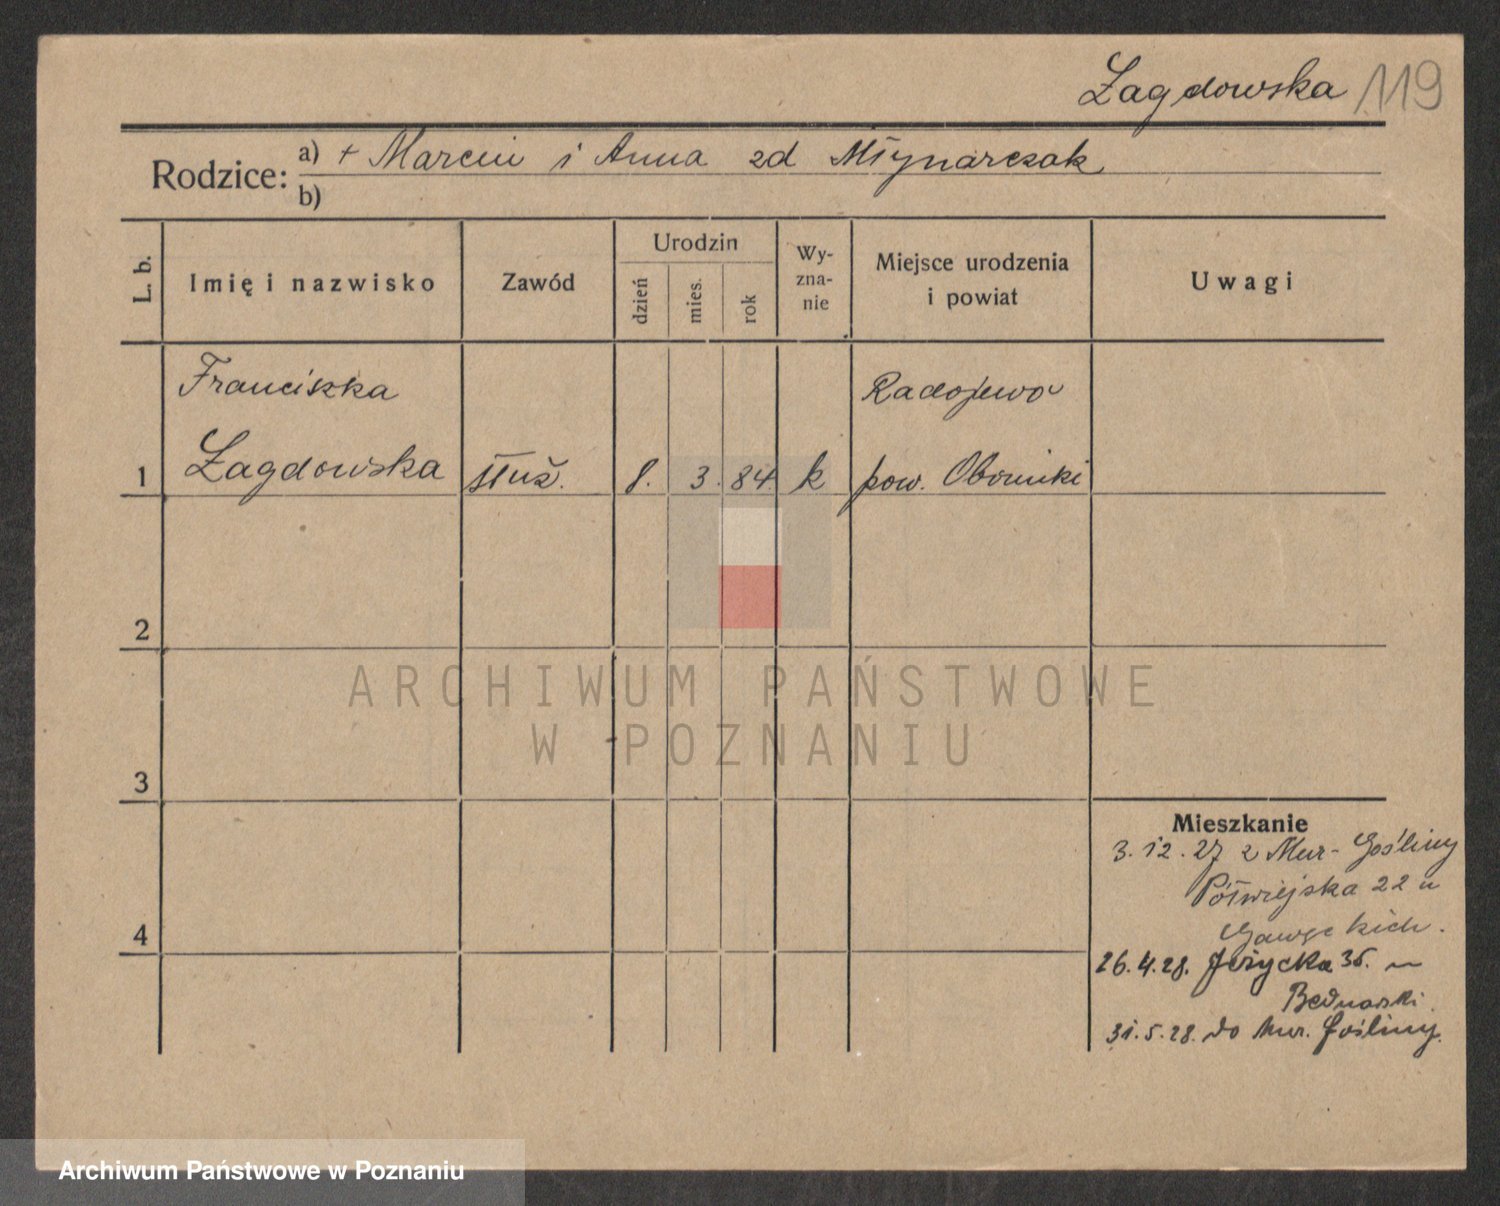 Żagdowska 119
Rodzice: a) + Marcin i Anna zd Młynarczak
b)
L. b.
Imię i nazwisko
Zawód
Urodzin
dzień
mies.
rok
Wy-
zna-
nie
Miejsce urodzenia
i powiat
Uwagi
Franciszka
Radojewo
1 Żagdowska służ. 8. 3. 84 k pow. Oborniki
2
3
4
Mieszkanie
3.12.27 z Mur-Gośliny
Półwiejska 22 u
26.4.28. Jeżycka 35. ~
Bednarski.
31.5.28. do Mur. Gośliny.
ARCHIWUM PAŃSTWOWE
W POZNANIU
Archiwum Państwowe w Poznaniu